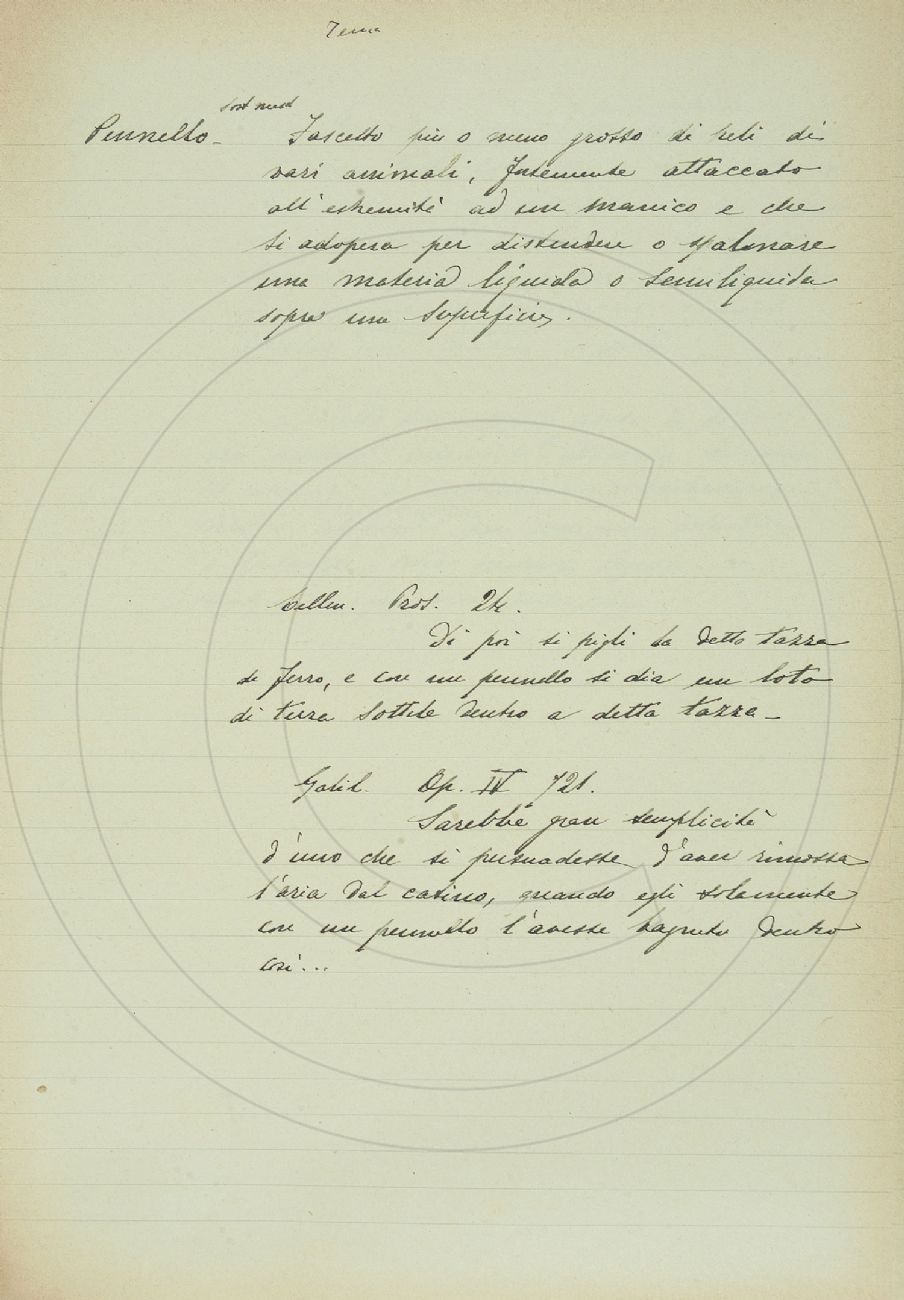 Tema
sost masch
Pennello - Fascetto più o meno grosso di peli di
vari animali, fortemente attaccato
all'estremità ad un manico e che
si adopera per distendere o spalmare
una materia liquida o semiliquida
sopra una superficie.
Cellin. Pros. 24.
Di poi si pigli la detta tazza
di ferro, e con un pennello si dia un loto
di terra sottile dentro a detta tazza -
Galil. Op. IV 721.
Sarebbe gran semplicità
d'uno che si persuadesse d'aver rimossa
l'aria dal catino, quando egli solamente
con un pennello l'avesse bagnato dentro
così...